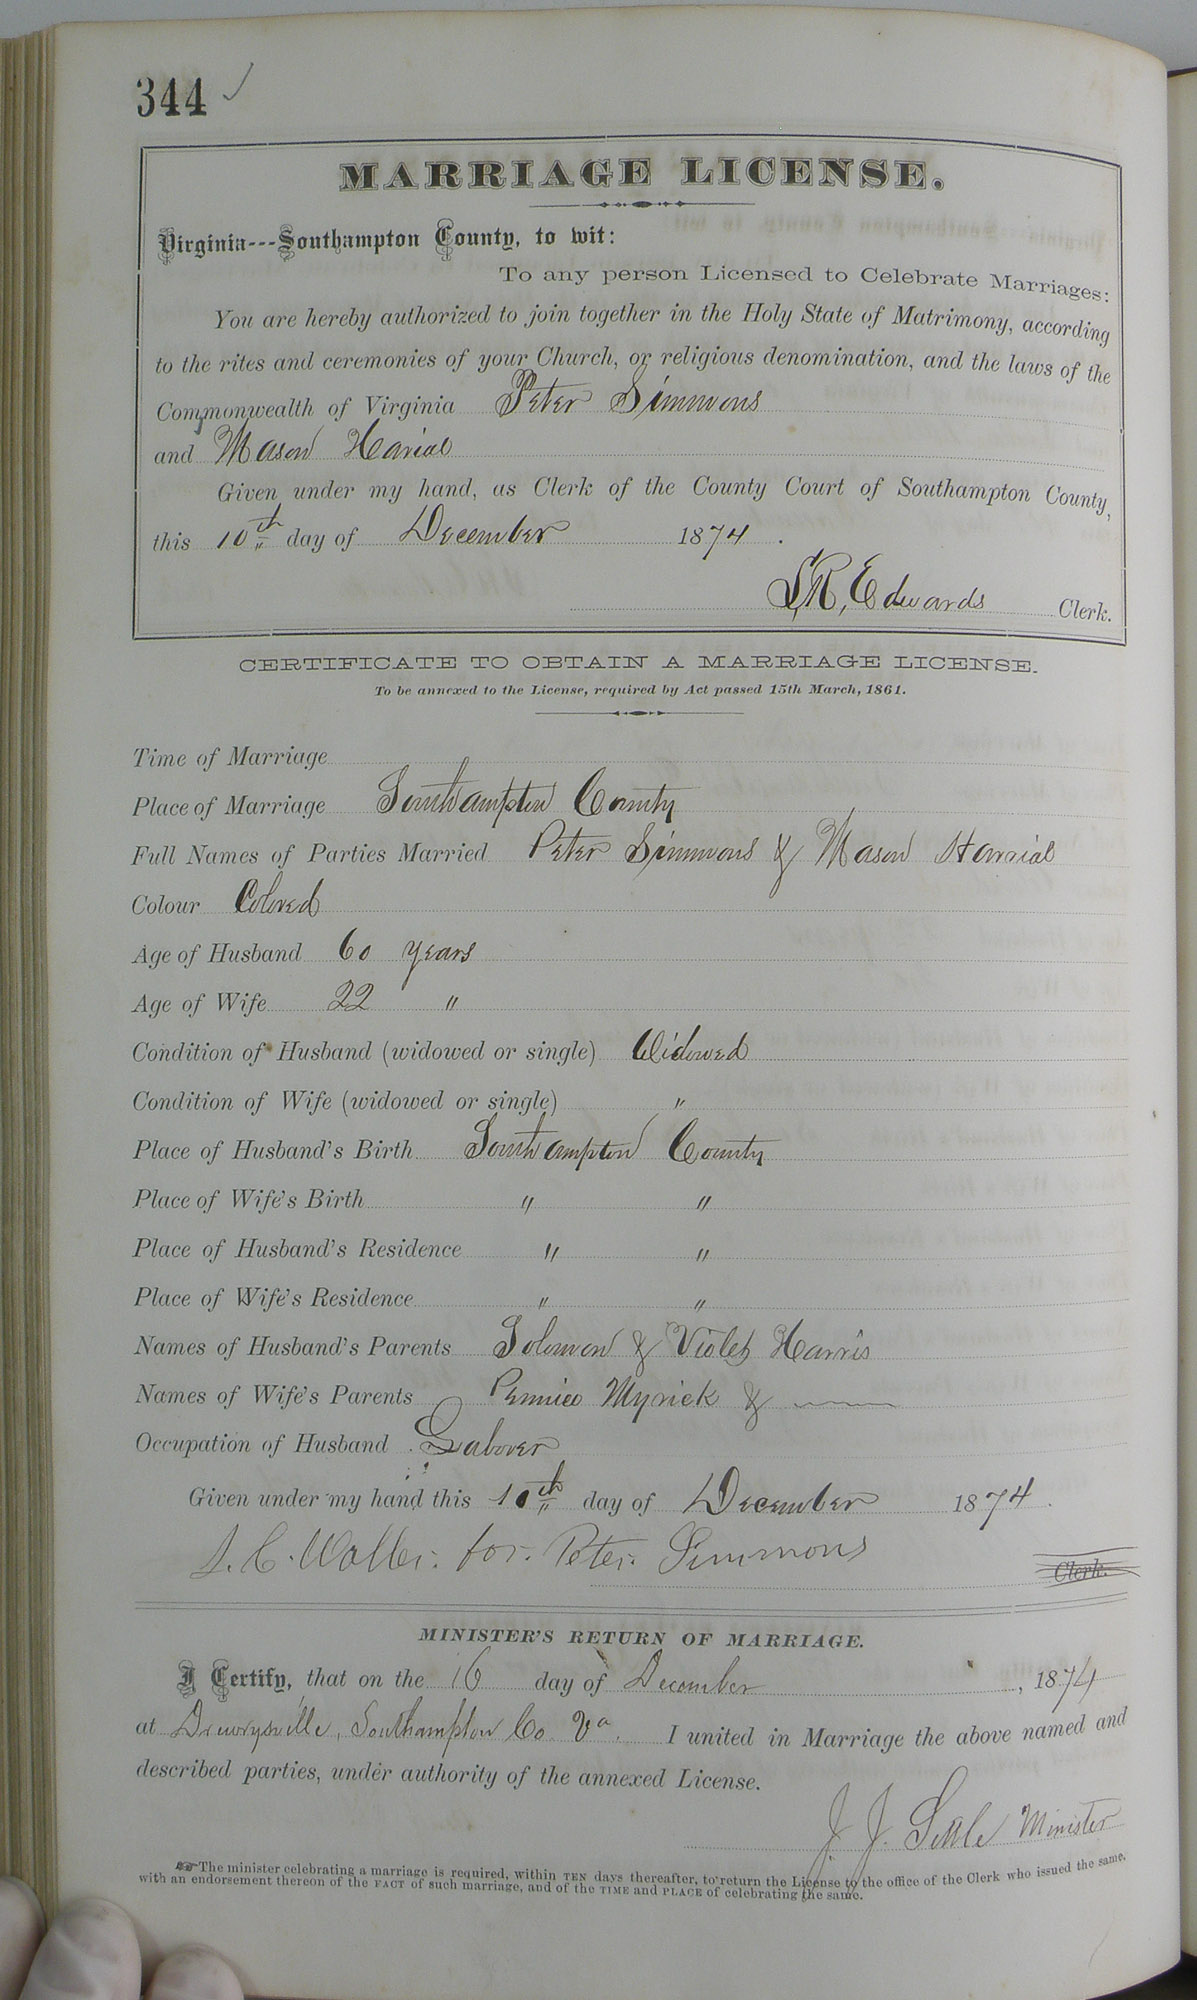 344 ✓
MARRIAGE LICENSE.
Virginia---Southampton County, to wit:
To any person Licensed to Celebrate Marriages:
You are hereby authorized to join together in the Holy State of Matrimony, according
to the rites and ceremonies of your Church, or religious denomination, and the laws of the
Commonwealth of Virginia Peter Simmons
and Mason Harial
Given under my hand, as Clerk of the County Court of Southampton County,
this 10th day of December 1874.
Edwards Clerk.
CERTIFICATE TO OBTAIN A MARRIAGE LICENSE.
To be annexed to the License, required by Act passed 15th March, 1861.
Time of Marriage
Place of Marriage Southampton County
Full Names of Parties Married Peter Simmons & Mason Harrial
Colour Colored
Age of Husband 60 years
Age of Wife 22 "
Condition of Husband (widowed or single) Widowed
Condition of Wife (widowed or single) "
Place of Husband's Birth Southampton County
Place of Wife's Birth " "
Place of Husband's Residence " "
Place of Wife's Residence " "
Names of Husband's Parents Solomon & Violet Harris
Names of Wife's Parents Myrick &
Occupation of Husband Laborer
Given under my hand this 10th day of December 1874.
for Peter Simmons Clerk.
MINISTER'S RETURN OF MARRIAGE.
I Certify, that on the 16 day of December, 1874
at Drewrysville, Southampton Co Va. I united in Marriage the above named and
described parties, under authority of the annexed License.
J. J. Minister
The minister celebrating a marriage is required, within TEN days thereafter, to return the License to the office of the Clerk who issued the same,
with an endorsement thereon of the FACT of such marriage, and of the TIME and PLACE of celebrating the same.